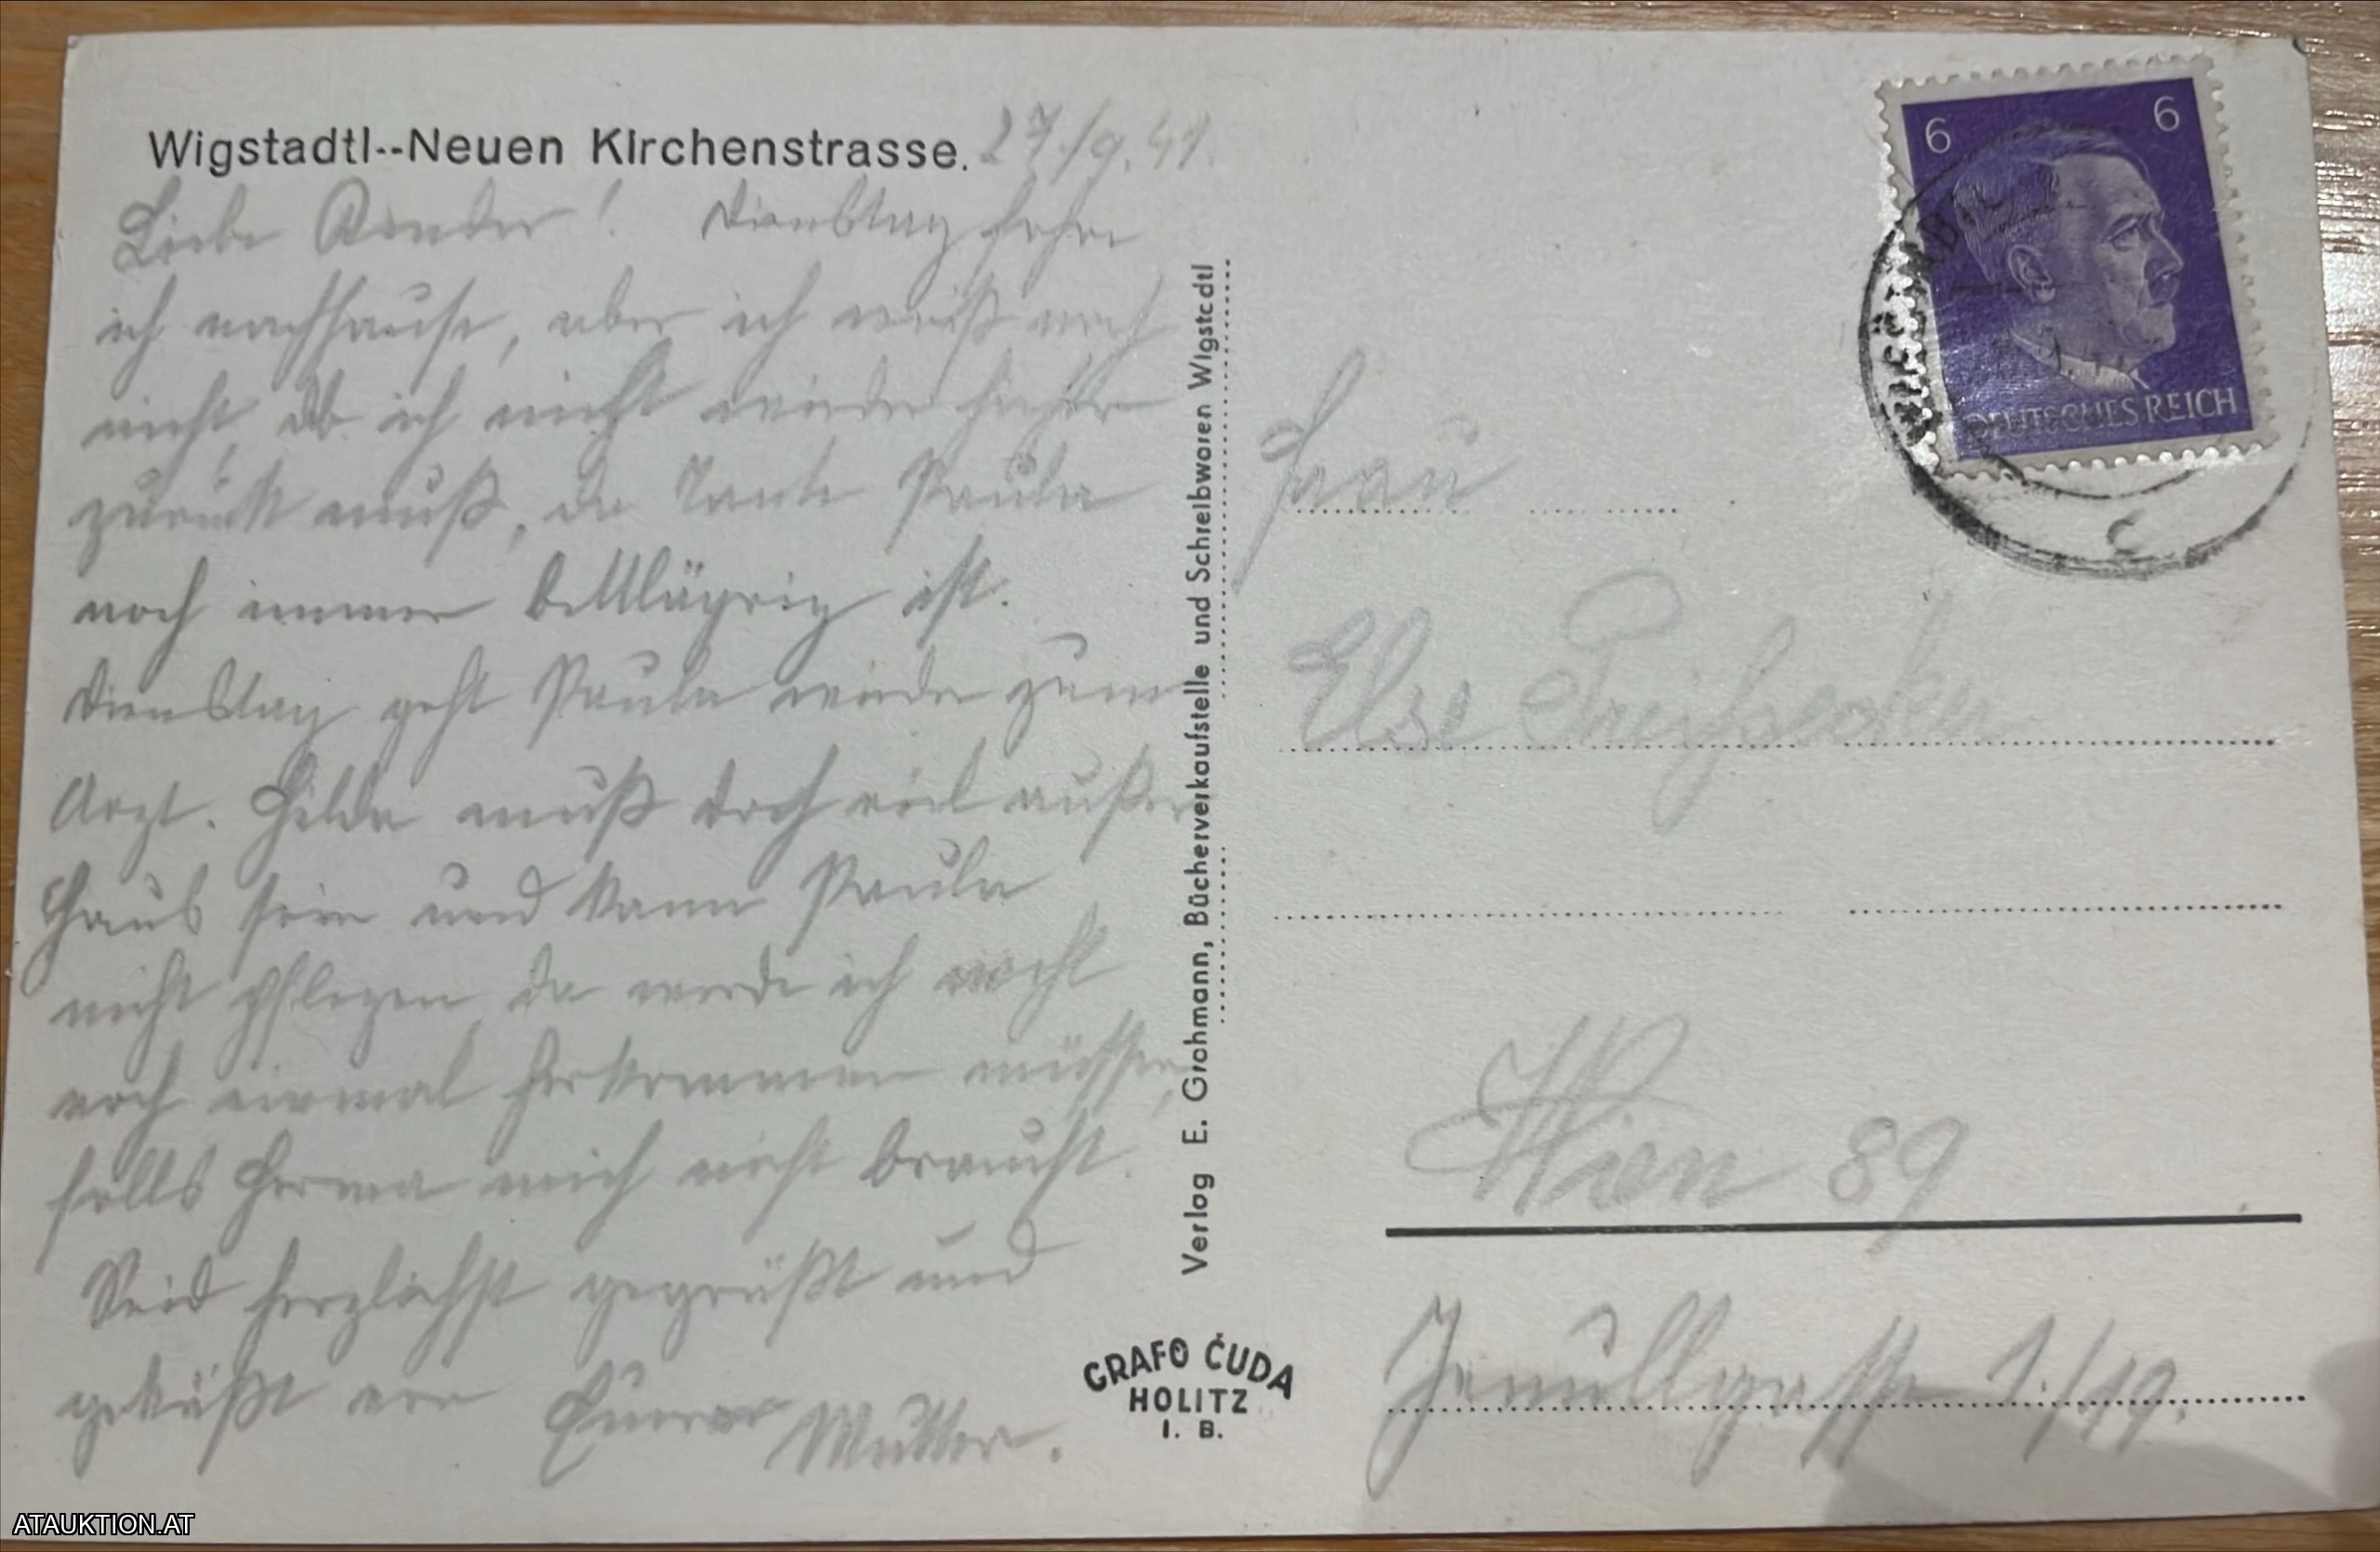 Wigstadtl--Neuen KIrchenstrasse. 27./9.41.
Liebe Kinder! Dienstag fahre
ich nachhause, aber ich weiß noch
nicht, ob ich nicht wieder hieher
zurück muß, da Tante Paula
noch immer bettlägrig ist.
Dienstag geht Paula wieder zum
Arzt. Hilda muß doch viel außer
Haus sein und kann Paula
nicht pflegen, da werde ich wohl
noch einmal herkommen müssen,
falls Herma mich nicht braucht.
Seid herzlichst gegrüßt und
geküßt von Eurer
Mutter.
Verlag E. Grohmann, Bücherverkaufstelle und Schreibwaren Wigstadtl
GRAFO ČUDA
HOLITZ
I. B.
6 6
DEUTSCHES REICH
c
Frau
Else
Wien 89
Jenullgasse 1./19.
ATAUKTION.AT